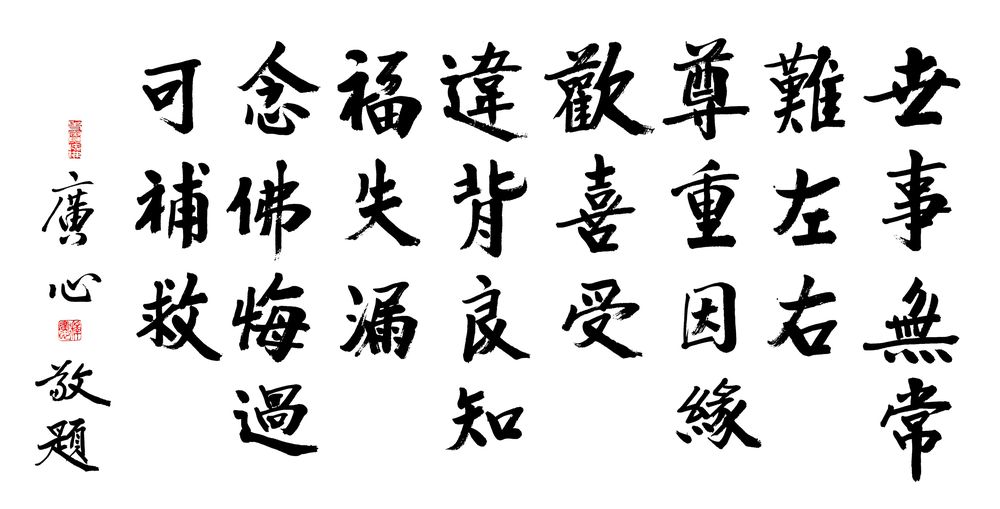 世事無常
難左右
尊重因緣
歡喜受
違背良知
福失漏
念佛悔過
可補救
廣心敬題